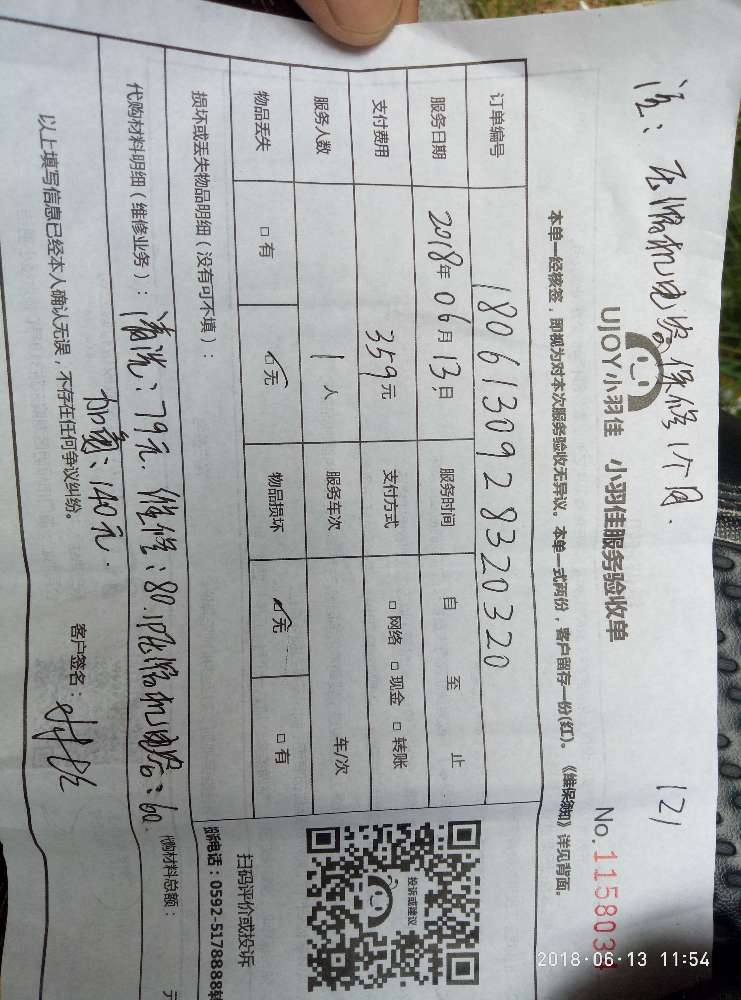 注：压缩机电容保修1个月.
121
UJOY小羽佳 小羽佳服务验收单
No.115803
本单一经核签，即视为对本次服务验收无异议。本单一式两份，客户留存一份(红)。《维保须知》详见背面。
订单编号 1806130928320320
服务日期 2018年06月13日 服务时间 自 至 止
支付费用 359元 支付方式 □网络 □现金 □转账
服务人数 1人 服务车次 车/次
物品丢失 □有 ☑无 物品损坏 ☑无 □有
损坏或丢失物品明细（没有可不填）：
投诉或建议
扫码评价或投诉
诉电话：0592-5178888转
代购材料明细（维修业务）：清洗：79元. 维修：80. 1P压缩机电容：60.
代购材料总额： 元
加氟：140元.
以上填写信息已经本人确认无误，不存在任何争议纠纷。
客户签名：
2018-06-13 11:54